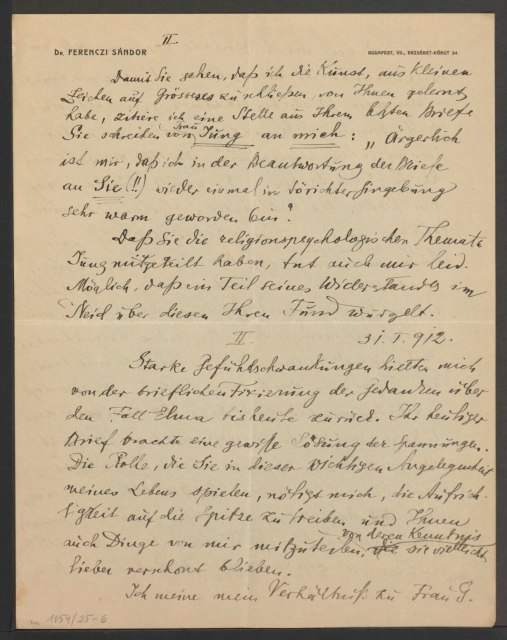 II
Dr. FERENCZI SÁNDOR
BUDAPEST, VII., ERZSÉBET-KÖRUT 54.
Damit Sie sehen, daß ich die Kunst, aus kleinen
Zeichen auf Grösseres zu schließen von Ihnen gelernt
habe, zitiere ich eine Stelle aus Ihrem letzten Briefe
Sie schreiben von Frau Jung an mich: „Ärgerlich
ist mir, daß ich in der Beantwortung der Briefe
an Sie (!!) wieder einmal in törichter Hingebung
sehr warm geworden bin."
Daß Sie die religionspsychologischen Themata
Jung mitgeteilt haben, tut auch mir leid.
Möglich, daß ein Teil seines Widerstandes im
Neid über diesen Ihren Fund wurzelt.
II.
31. I. 912.
Starke Gefühlsschwankungen hielten mich
von der brieflichen Fixierung der Gedanken über
den Fall Elma bis heute zurück. Ihr heutiger
Brief brachte eine gewisse Lösung der Spannungen.
Die Rolle, die Sie in dieser wichtigen Angelegenheit
meines Lebens spielen, nötigt mich, die Aufrich-
tigkeit auf die Spitze zu treiben und Ihnen
auch Dinge von mir mitzuteilen, von deren Kenntnis sie vielleicht
lieber verschont blieben.
Ich meine mein Verhältniß zu Frau G.
1054/25-6